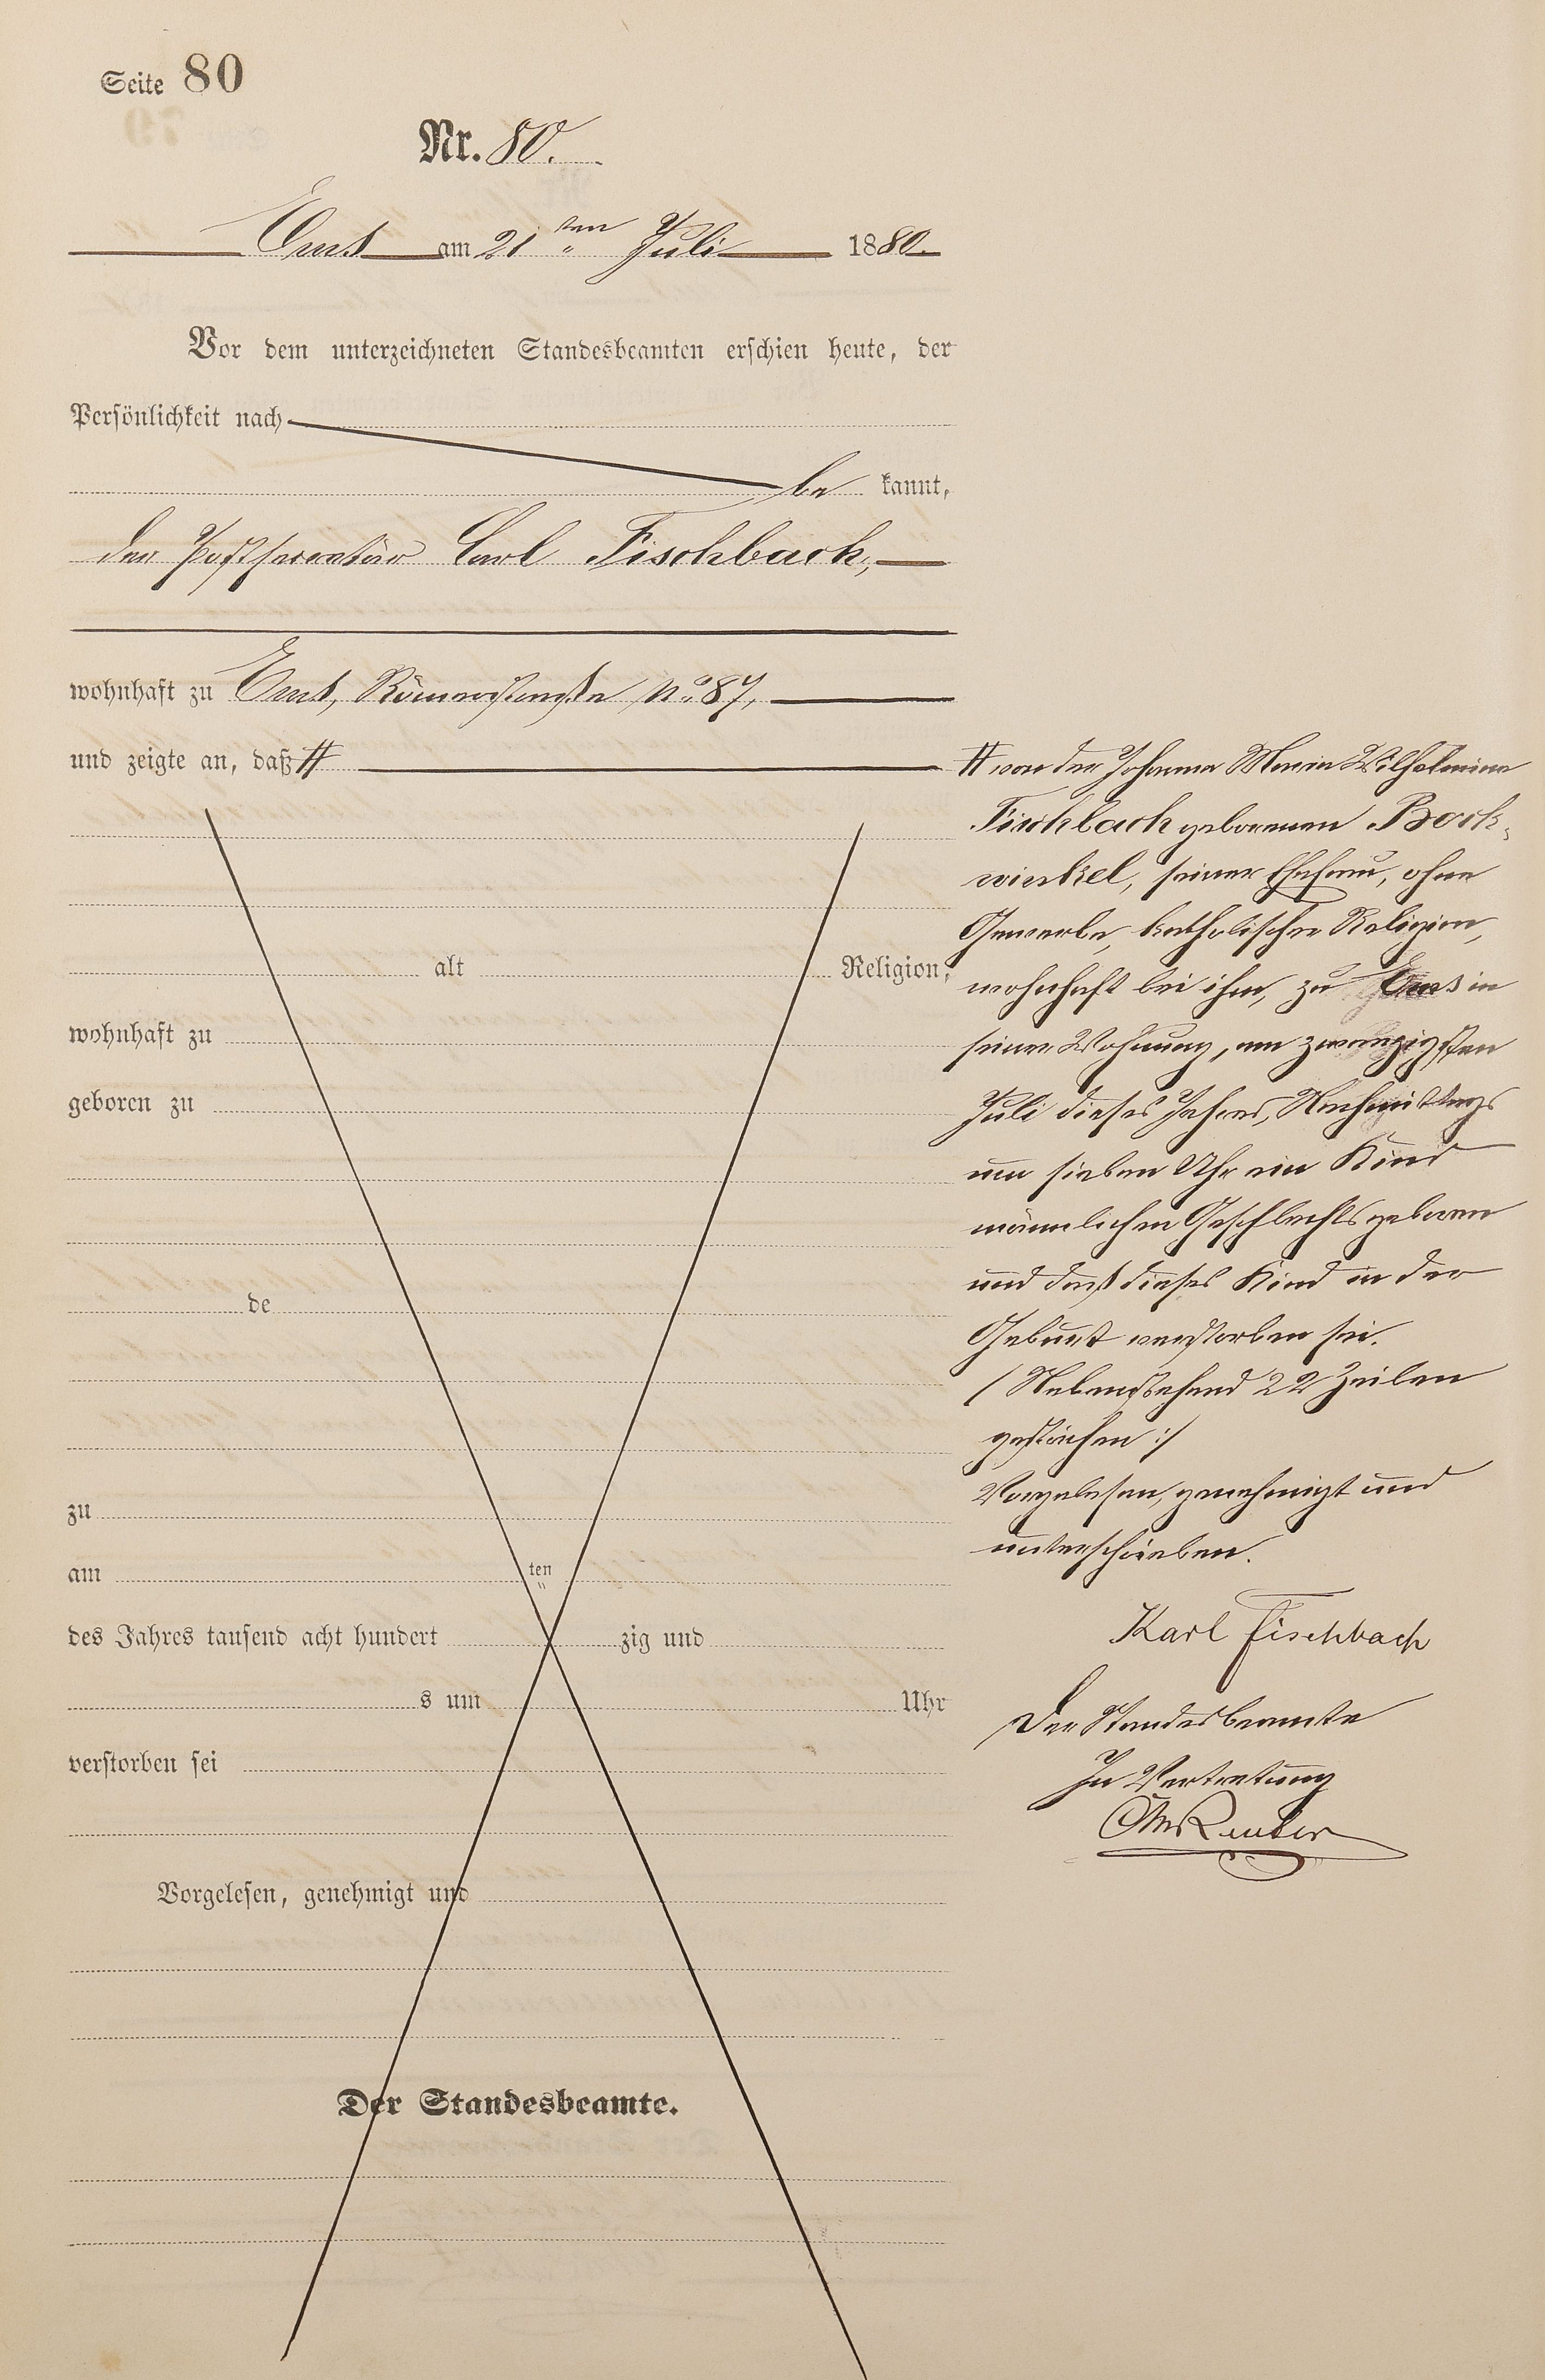 Seite 80
Nr. 80.
Ems am 21ten Juli 1880.
Vor dem unterzeichneten Standesbeamten erschien heute, der
Persönlichkeit nach
be kannt,
der Postsecretär Carl Fischbach,
wohnhaft zu Ems, Römerstraße No. 87,
und zeigte an, daß #
alt Religion,
wohnhaft zu
geboren zu
de
zu
am ten
des Jahres tausend acht hundert zig und
s um Uhr
verstorben sei
Vorgelesen, genehmigt und
Der Standesbeamte.
# von der Johanna Maria Wilhelmine
Fischbach geborenen Bock-
winkel, seiner Ehefrau, ohne
Gewerbe, katholischer Religion,
wohnhaft bei ihm, zu Ems in
seiner Wohnung, am zwanzigsten
Juli dieses Jahres, Nachmittags
um sieben Uhr ein Kind
männlichen Geschlechts geboren
und daß dieses Kind in der
Geburt verstorben sei.
/ Nebenstehend 22 Zeilen
gestrichen :/
Vorgelesen, genehmigt und
unterschrieben.
Karl Fischbach
Der Standesbeamte
In Vertretung